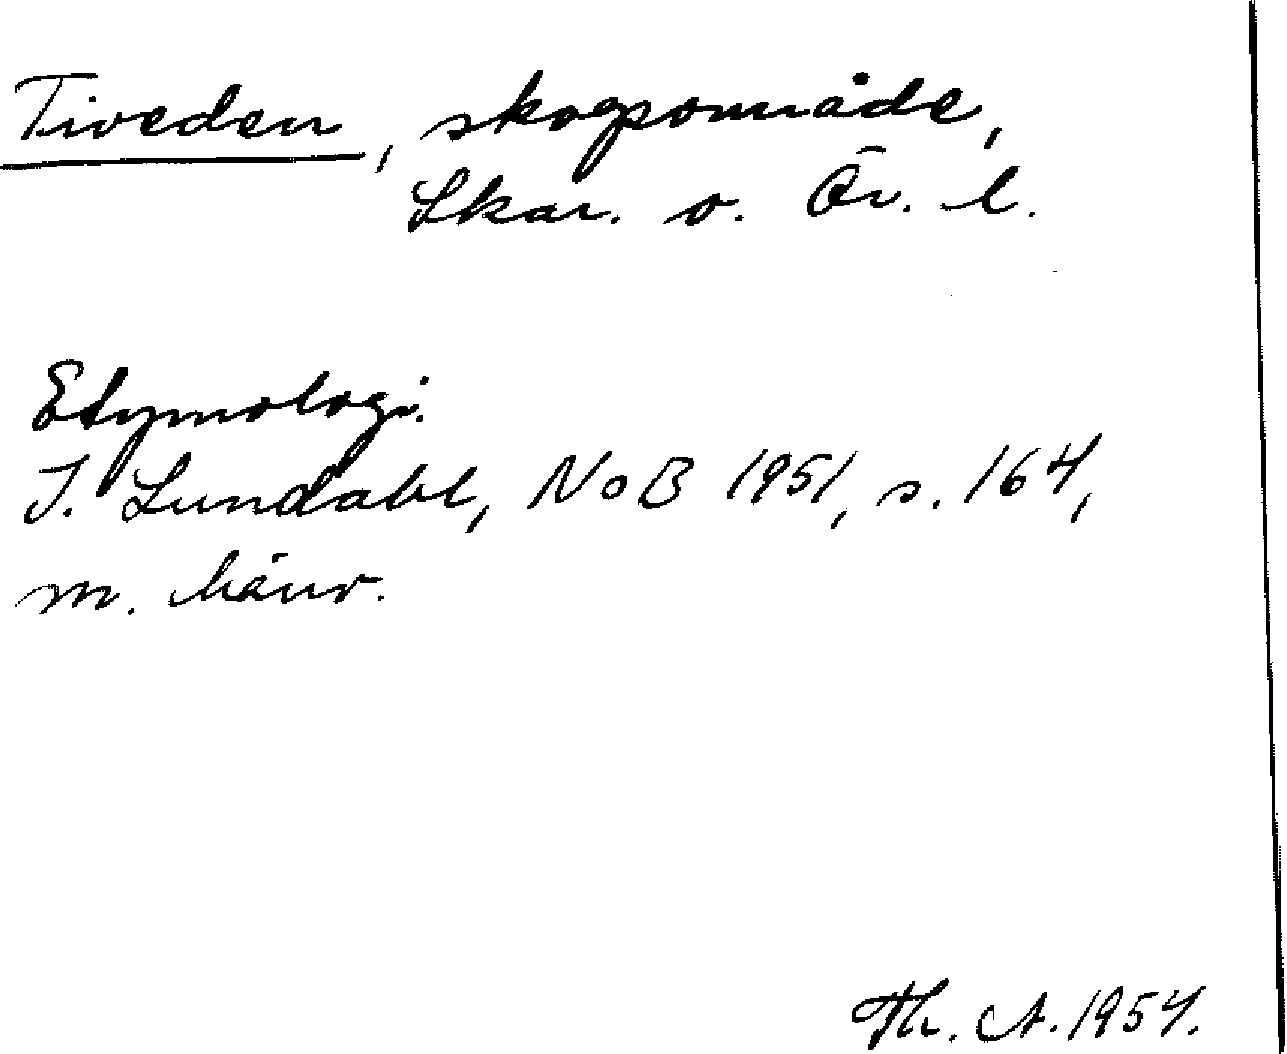 Tiveden, skogsområde,
Skar. o. Ör. l.
Etymologi.
I. Lundahl, NoB 1951, s. 164,
m. hänv.
Th. A. 1954.